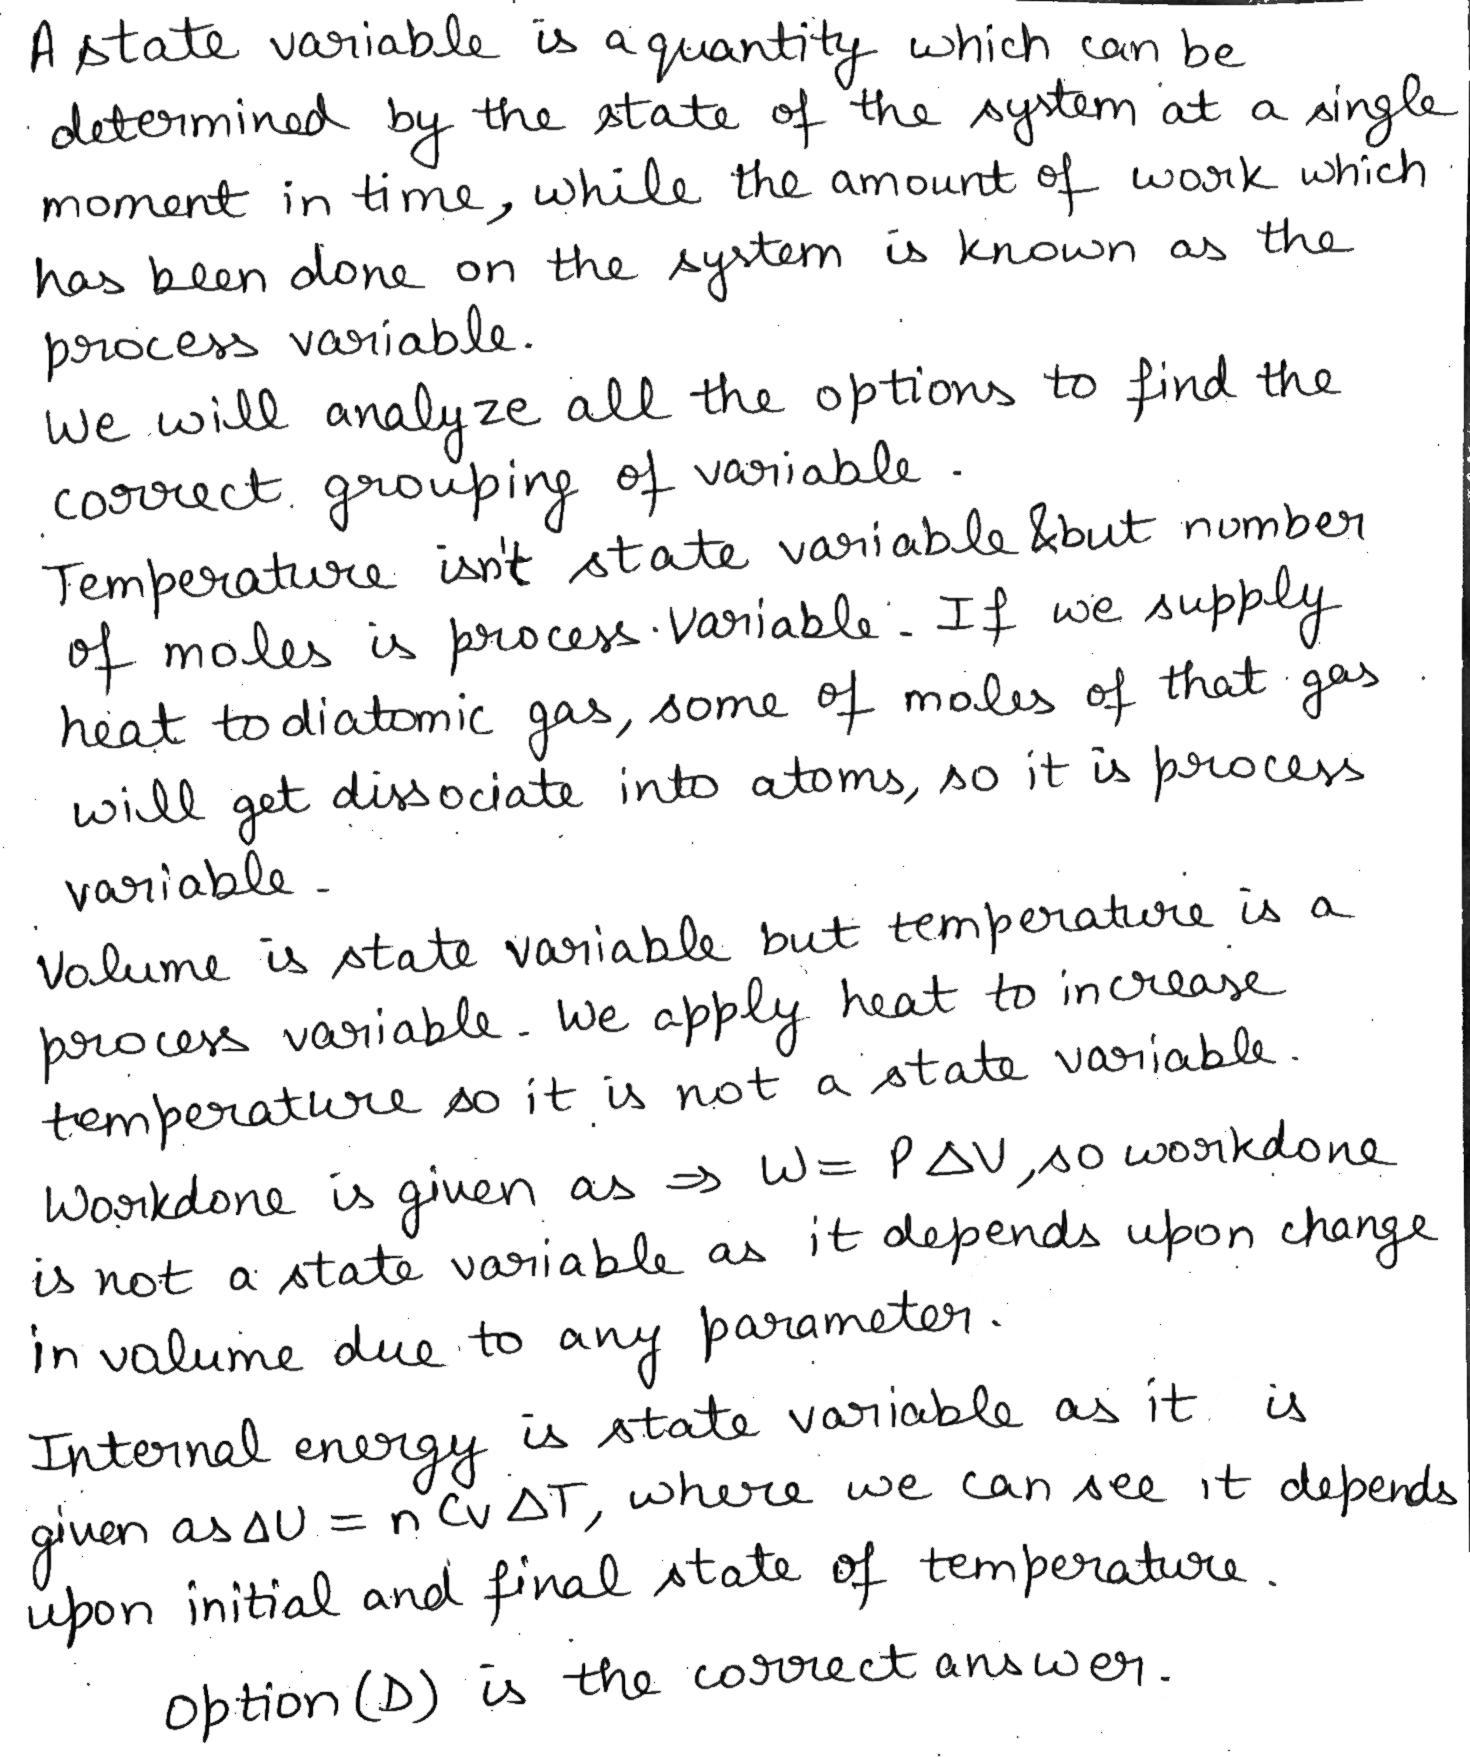 A state variable is a quantity which can be
determined by the state of the system at a single
moment in time, while the amount of work which
has been done on the system is known as the
process variable.
We will analyze all the options to find the
correct grouping of variable.
Temperature isn't state variable &but number
of moles is process variable. If we supply
heat to diatomic gas, some of moles of that gas
will get dissociate into atoms, so it is process
variable.
Volume is state variable but temperature is a
process variable. We apply heat to increase
temperature so it is not a state variable.
Workdone is given as ⇒ W = PΔV, so workdone
is not a state variable as it depends upon change
in valume due to any parameter.
Internal energy is state variable as it is
given as ΔU = nCvΔT, where we can see it depends
upon initial and final state of temperature.
option (D) is the correct answer.